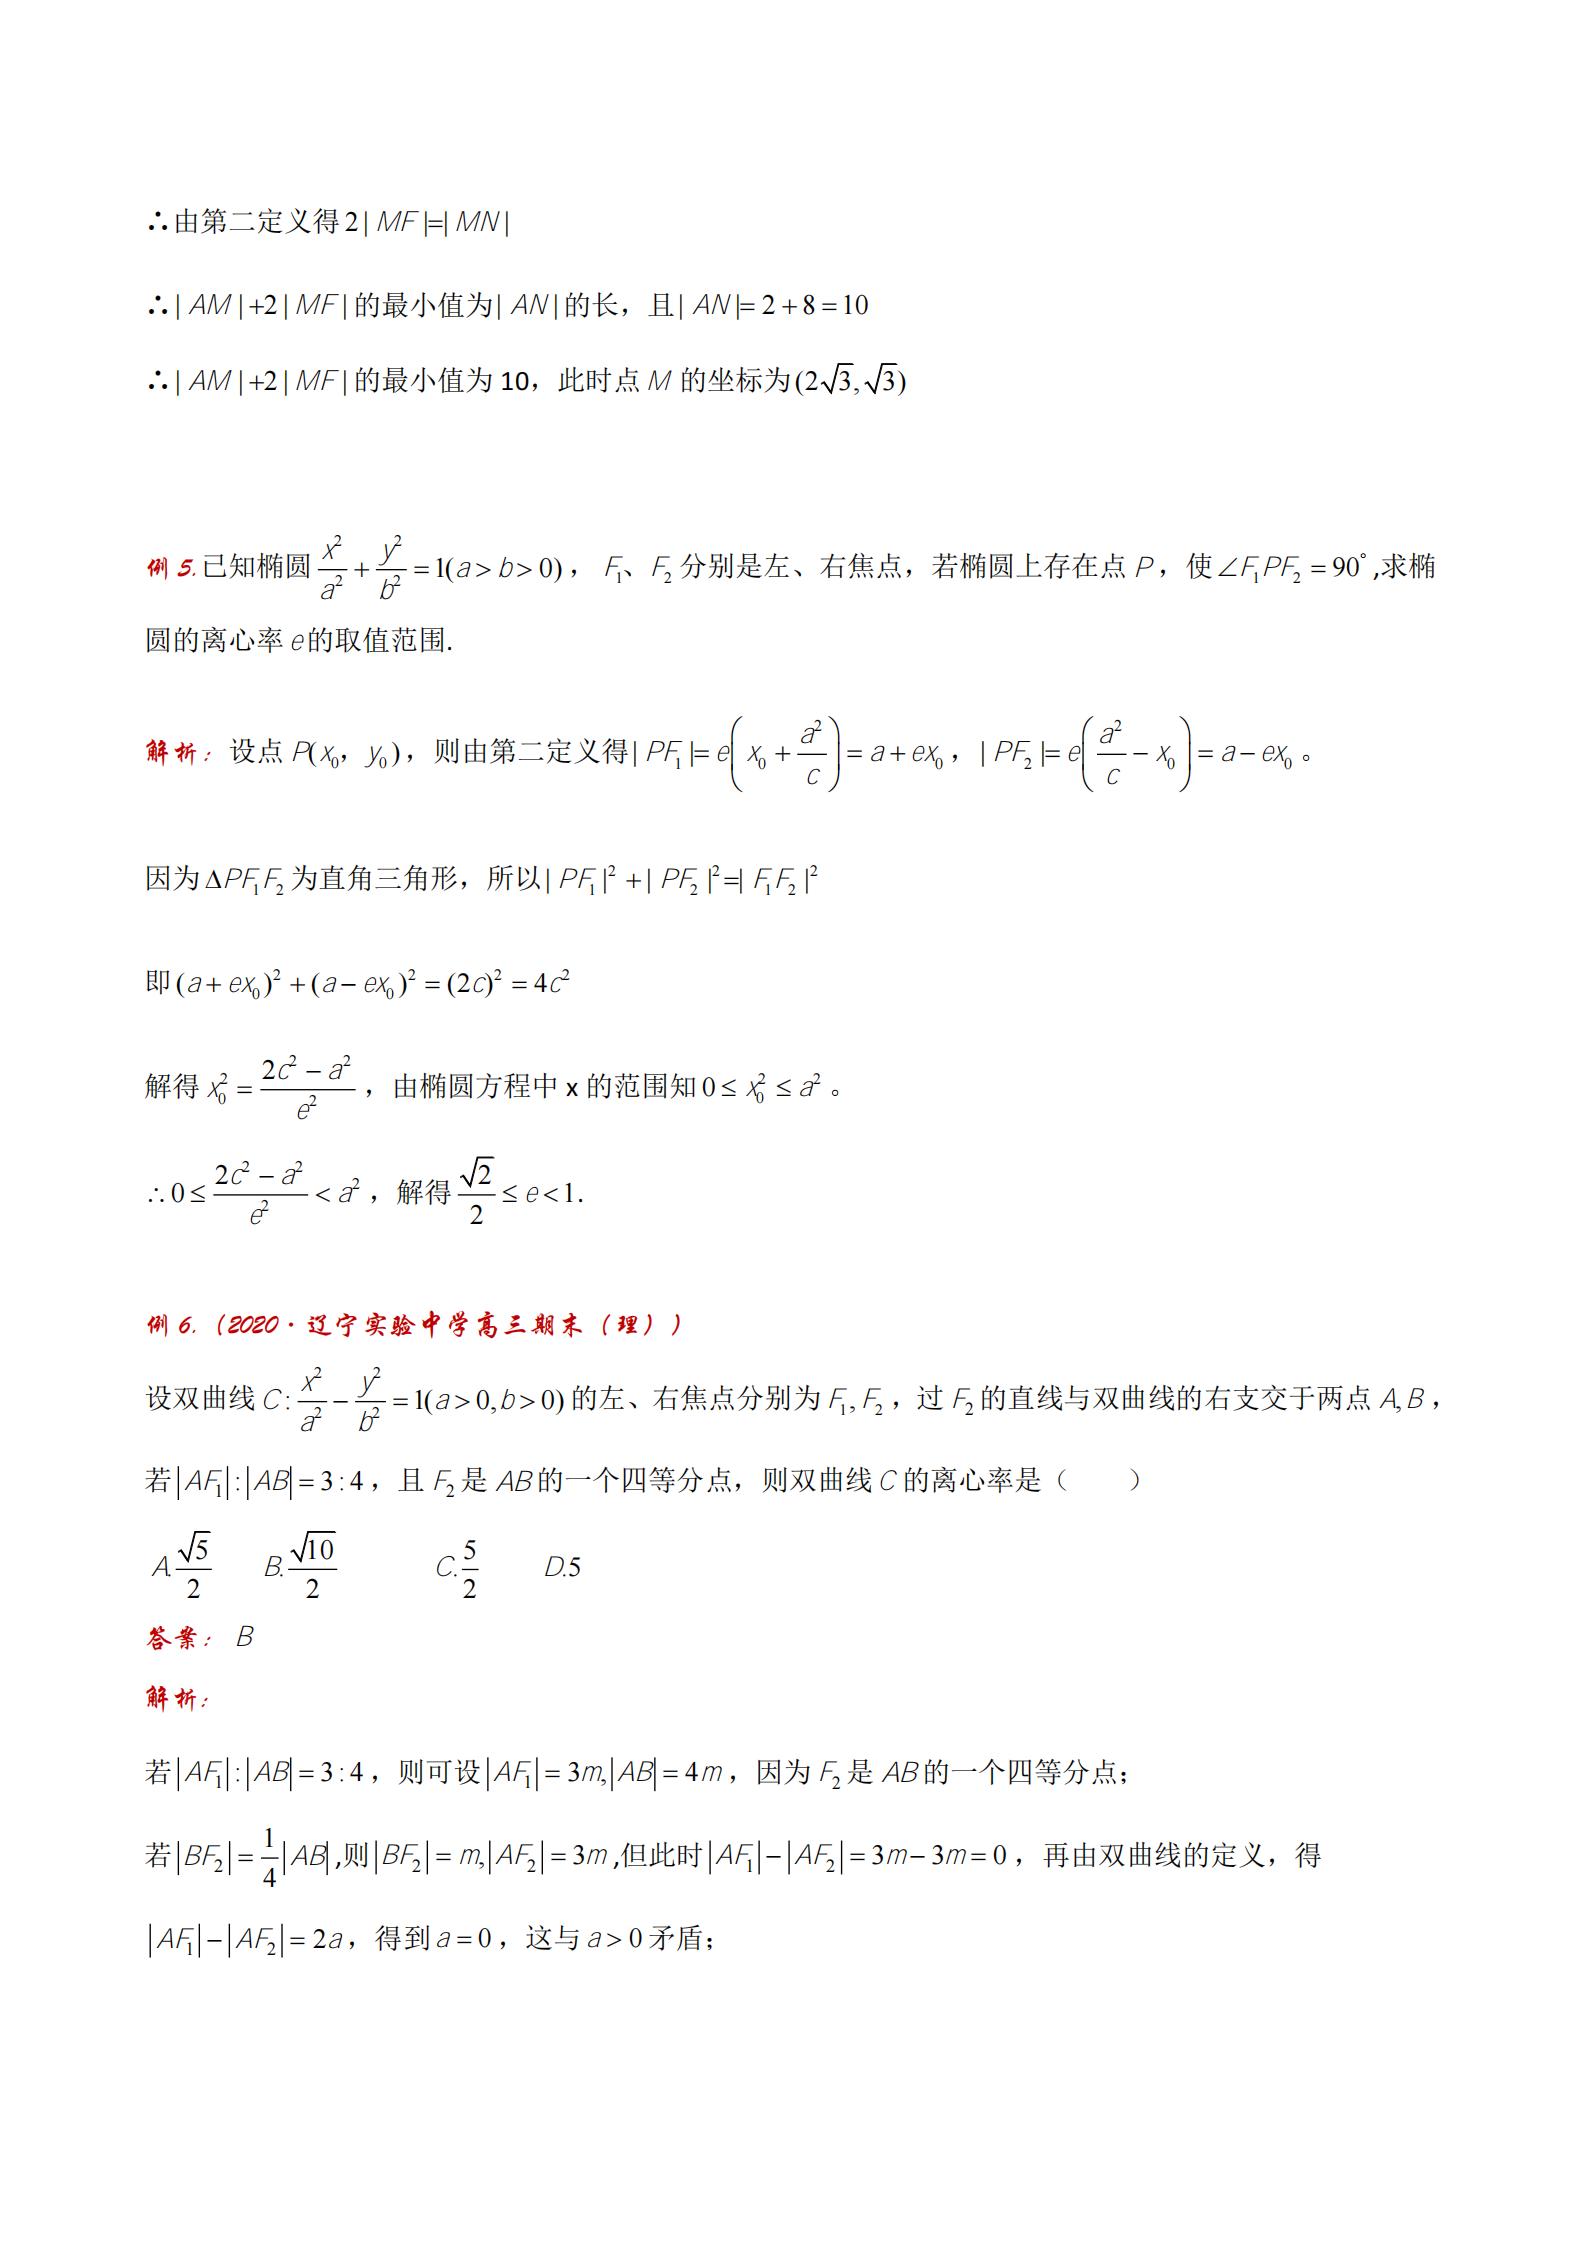 ∴由第二定义得2|MF|=|MN|
∴|AM|+2|MF|的最小值为|AN|的长，且|AN|=2+8=10
∴|AM|+2|MF|的最小值为 10，此时点M 的坐标为(2√3,√3)
例 5.已知椭圆 x²/a² + y²/b² = 1(a > b > 0)， F₁、F₂ 分别是左、右焦点，若椭圆上存在点 P，使∠F₁PF₂ = 90°,求椭
圆的离心率 e的取值范围.
解析：设点 P(x₀，y₀)，则由第二定义得|PF₁|= e(x₀ + a²/c) = a + ex₀，|PF₂|= e(a²/c − x₀) = a − ex₀。
因为ΔPF₁F₂为直角三角形，所以|PF₁|²+|PF₂|²=|F₁F₂|²
即(a + ex₀)² + (a − ex₀)² = (2c)² = 4c²
解得 x₀² = (2c² − a²)/e²，由椭圆方程中 x 的范围知0 ≤ x₀² ≤ a²。
∴0 ≤ (2c² − a²)/e² < a²，解得 √2/2 ≤ e < 1.
例 6.（2020·辽宁实验中学高三期末（理））
设双曲线C: x²/a² − y²/b² = 1(a > 0, b > 0)的左、右焦点分别为F₁, F₂，过F₂的直线与双曲线的右支交于两点A, B，
若|AF₁|:|AB| = 3:4，且F₂是AB的一个四等分点，则双曲线C的离心率是（　　）
A.√5/2　B.√10/2　C.5/2　D.5
答案： B
解析：
若|AF₁|:|AB| = 3:4，则可设|AF₁| = 3m,|AB| = 4m，因为F₂是AB的一个四等分点；
若|BF₂| = 1/4|AB|,则|BF₂| = m,|AF₂| = 3m,但此时|AF₁| − |AF₂| = 3m − 3m = 0，再由双曲线的定义，得
|AF₁| − |AF₂| = 2a，得到a = 0，这与a > 0矛盾；